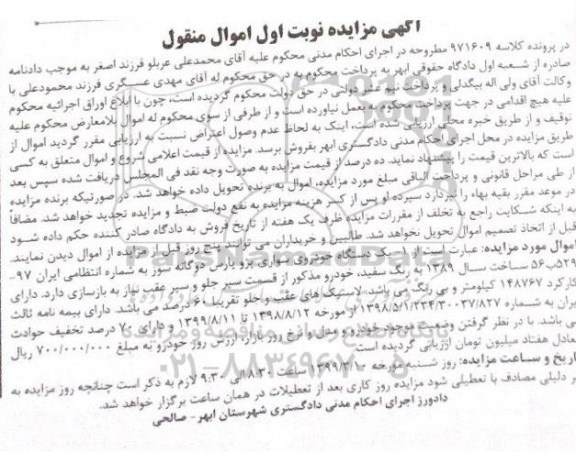 آگهی مزایده نوبت اول اموال منقول
در پرونده کلاسه ۹۷۱۶۰۹ مطروحه در اجرای احکام مدنی محکوم علیه آقای محمدعلی عربلو فرزند اصغر به موجب دادنامه
صادره از شعبه اول دادگاه حقوقی ابهر به پرداخت محکوم به در حق محکوم له آقای مهدی عسگری فرزند محمودعلی با
وکالت آقای ولی اله بیگدلی و پرداخت نیم عشر دولتی در حق دولت محکوم گردیده است، چون با ابلاغ اوراق اجرائیه محکوم
علیه هیچ اقدامی در جهت پرداخت محکوم به بعمل نیاورده است و از طرفی از سوی محکوم له اموال بلامعارض محکوم علیه
توقیف و از طریق خبره محلی ارزیابی شده است، اینک به لحاظ عدم وصول اعتراض نسبت به ارزیابی مقرر گردید اموال از
طریق مزایده در محل اجرای احکام مدنی دادگستری ابهر بفروش برسد. مزایده از قیمت اعلامی شروع و اموال متعلق به کسی
است که بالاترین قیمت را پیشنهاد نماید. ده درصد از قیمت مزایده به صورت وجه نقد فی المجلس دریافت شده سپس بعد
از طی مراحل قانونی و پرداخت الباقی مبلغ مورد مزایده، اموال به برنده تحویل داده خواهد شد. در صورتیکه برنده مزایده
در موعد مقرر بقیه بهاء را نپردازد سپرده او پس از کسر هزینه مزایده به نفع دولت ضبط و مزایده تجدید خواهد شد. مضافاً
به اینکه شکایت راجع به تخلف از مقررات مزایده ظرف یک هفته از تاریخ فروش به دادگاه صادر کننده حکم داده شود
قبل از اتخاذ تصمیم اموال تحویل نخواهد شد. طالبین و خریداران می توانند پنج روز قبل از مزایده از اموال دیدن نمایند.
اموال مورد مزایده: عبارت است از: یک دستگاه خودروی سواری پژو پارس دوگانه سوز به شماره انتظامی ایران ۹۷-
۵۲۹ب۵۶ ساخت سال ۱۳۸۹ به رنگ سفید، خودرو مذکور از قسمت سپر جلو و سپر عقب نیاز به بازسازی دارد. دارای
کارکرد ۱۴۸۷۶۷ کیلومتر و بی رنگ می باشد. لاستیک‌های عقب و جلو تقریبا ۶۰ درصد می باشد. دارای بیمه نامه ثالث
ایران به شماره ۱۳۹۸/۵۱/۲۳۴/۳۰۰۳۷/۸۲۷ از مورخه ۱۳۹۸/۸/۱۲ تا ۱۳۹۹/۸/۱۱ و دارای ۷۰ درصد تخفیف حوادث
می باشد. با در نظر گرفتن وضعیت موجود خودرو و مدل و نرخ روز بازار، ارزش روز خودرو به مبلغ ۷۰۰/۰۰۰/۰۰۰ ریال
معادل هفتاد میلیون تومان ارزیابی گردیده است.
تاریخ و ساعت مزایده: روز شنبه مورخه ۱۳۹۹/۳/۱۰ ساعت ۸:۳۰ الی ۹:۳۰ لازم به ذکر است چنانچه روز مزایده به
هر دلیلی مصادف با تعطیلی شود مزایده روز کاری بعد از تعطیلات در همان ساعت برگزار خواهد شد.
دادورز اجرای احکام مدنی دادگستری شهرستان ابهر - صالحی
۰۲۱-۸۸۳۴۹۶۷۰-۵